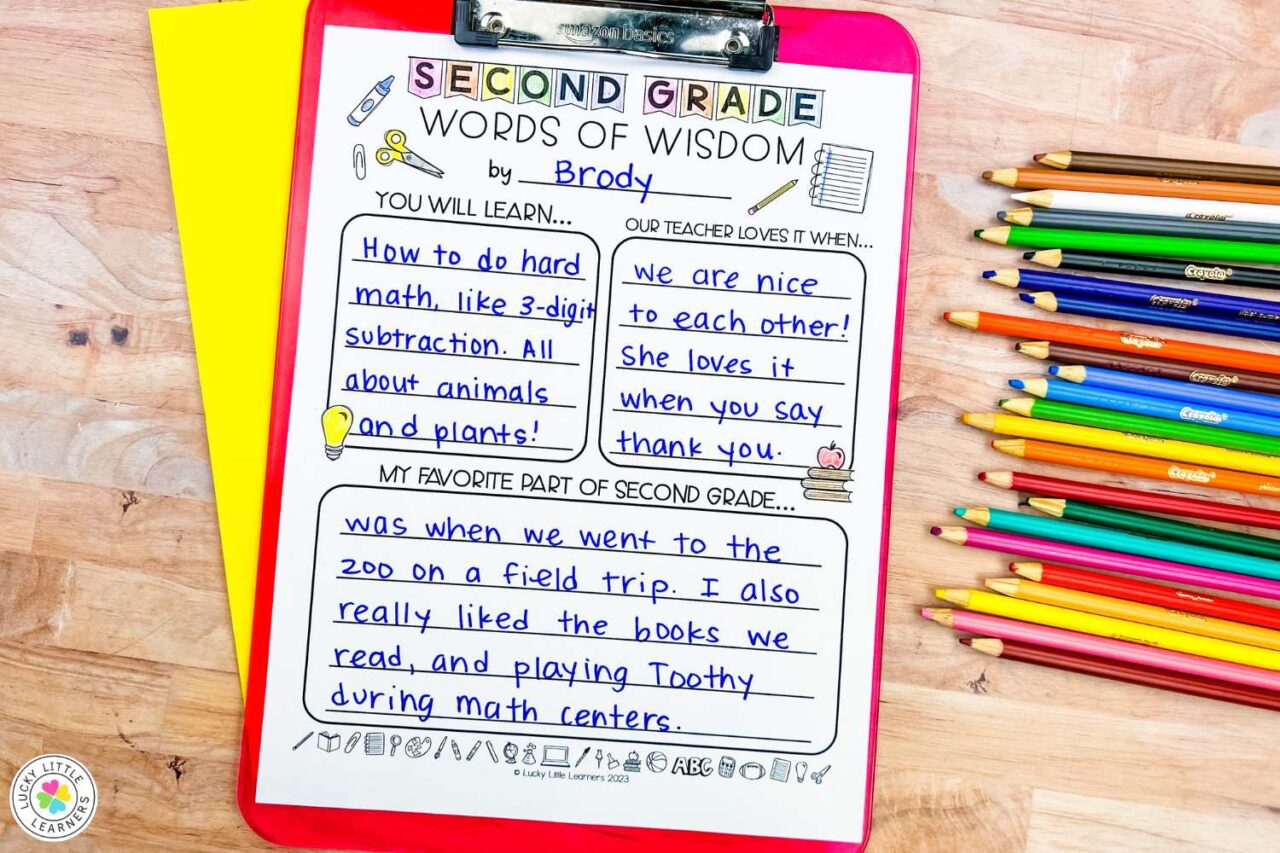 amazon basics
SECOND GRADE
WORDS OF WISDOM
by Brody
YOU WILL LEARN...
How to do hard
math, like 3-digit
subtraction. All
about animals
and plants!
OUR TEACHER LOVES IT WHEN...
we are nice
to each other!
She loves it
when you say
thank you.
MY FAVORITE PART OF SECOND GRADE...
was when we went to the
zoo on a field trip. I also
really liked the books we
read, and playing Toothy
during math centers.
ABC
© Lucky Little Learners 2023
LUCKY LITTLE
LEARNERS
Crayola
Crayola
Crayola
Crayola
Crayola
Crayola